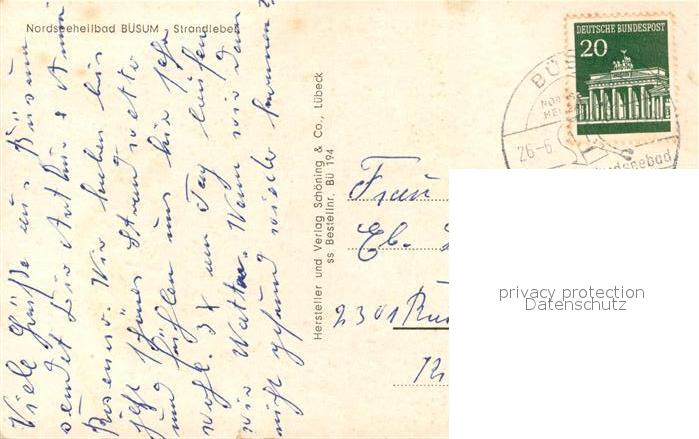 Nordseeheilbad BÜSUM - Strandleben
Viele Grüße aus Büsum
sendet Dir Arthur & Anni
Wir haben hier
jetzt schönes Strandwetter
und fühlen uns hier sehr
wohl. 3x am Tag laufen
wir Watt Wenn wir dann
nicht gesund wieder kommen?
Hersteller und Verlag Schöning & Co., Lübeck
ss Bestellnr. BÜ 194
DEUTSCHE BUNDESPOST
20
BÜS
26-6
Nordseebad
Frau
Eb.
2301
privacy protection
Datenschutz